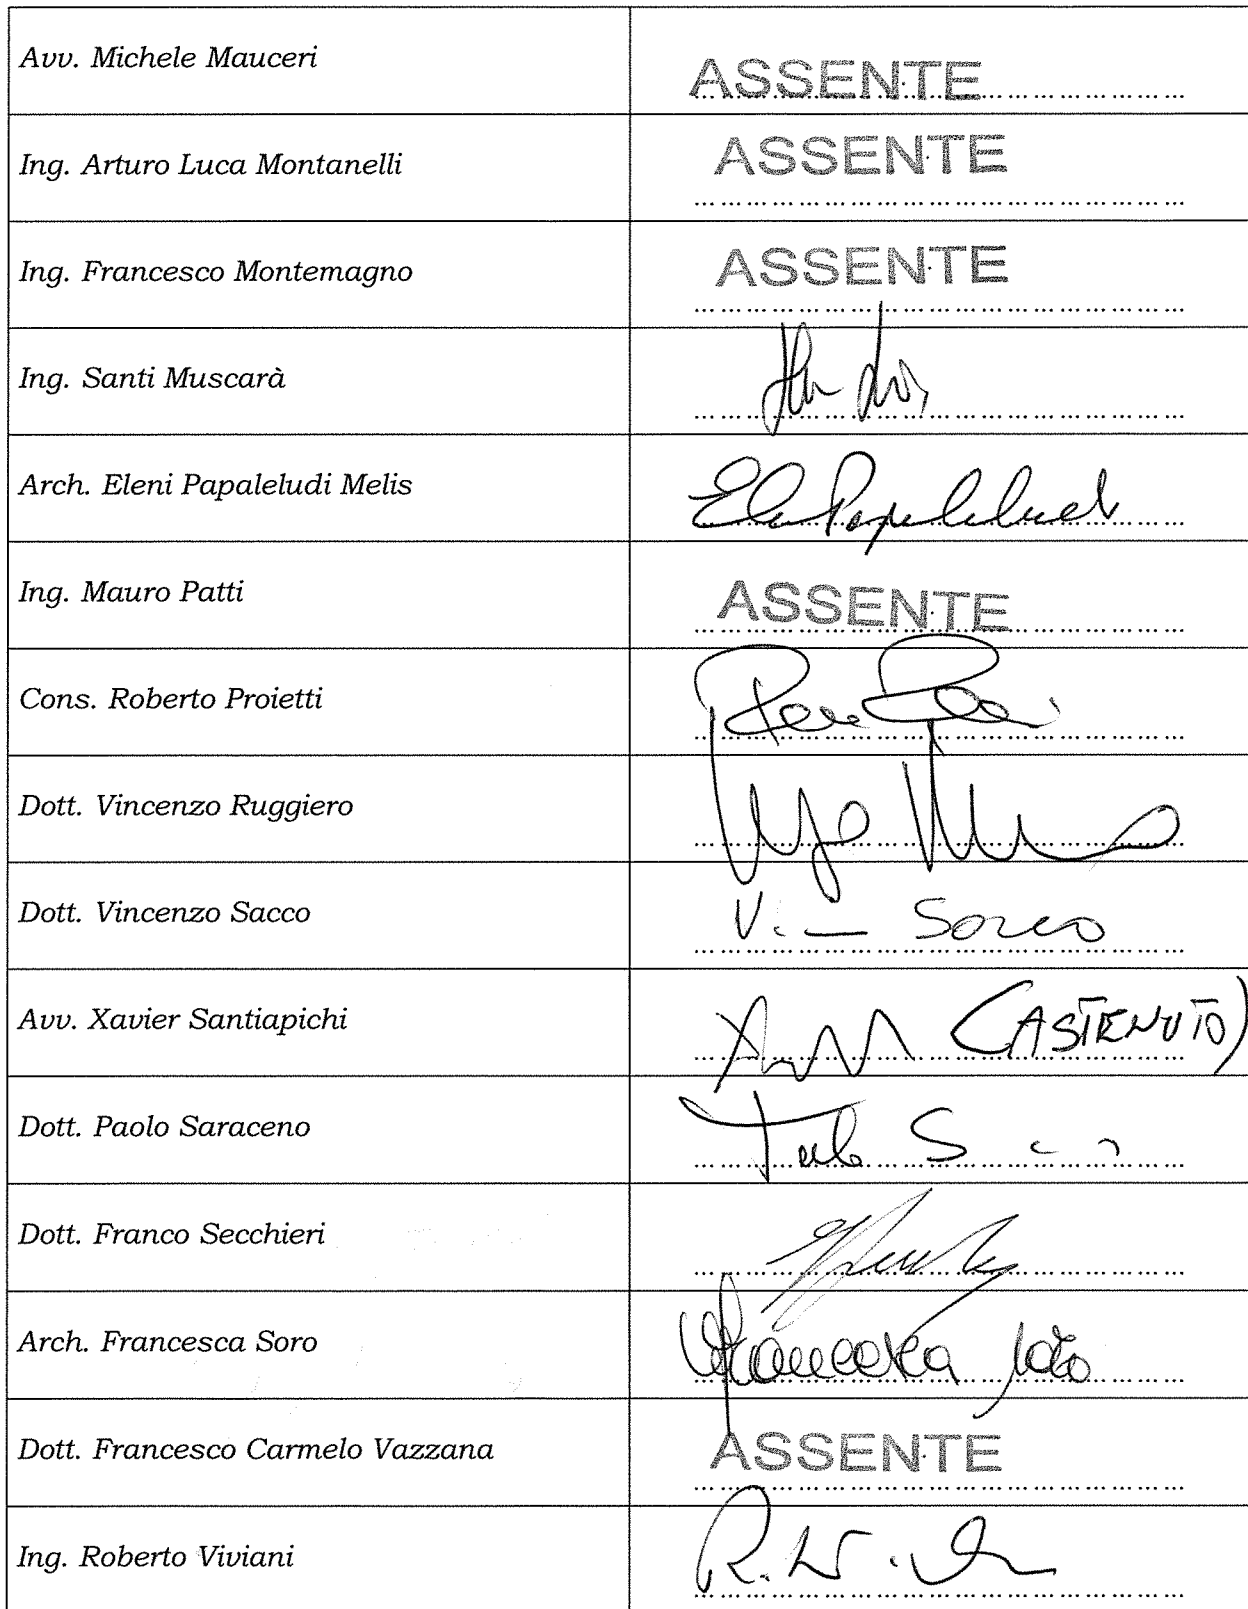 Avv. Michele Mauceri
ASSENTE
Ing. Arturo Luca Montanelli
ASSENTE
Ing. Francesco Montemagno
ASSENTE
Ing. Santi Muscarà
Arch. Eleni Papaleludi Melis
Ing. Mauro Patti
ASSENTE
Cons. Roberto Proietti
Dott. Vincenzo Ruggiero
Dott. Vincenzo Sacco
Avv. Xavier Santiapichi
(ASTENUTO)
Dott. Paolo Saraceno
Dott. Franco Secchieri
Arch. Francesca Soro
Dott. Francesco Carmelo Vazzana
ASSENTE
Ing. Roberto Viviani